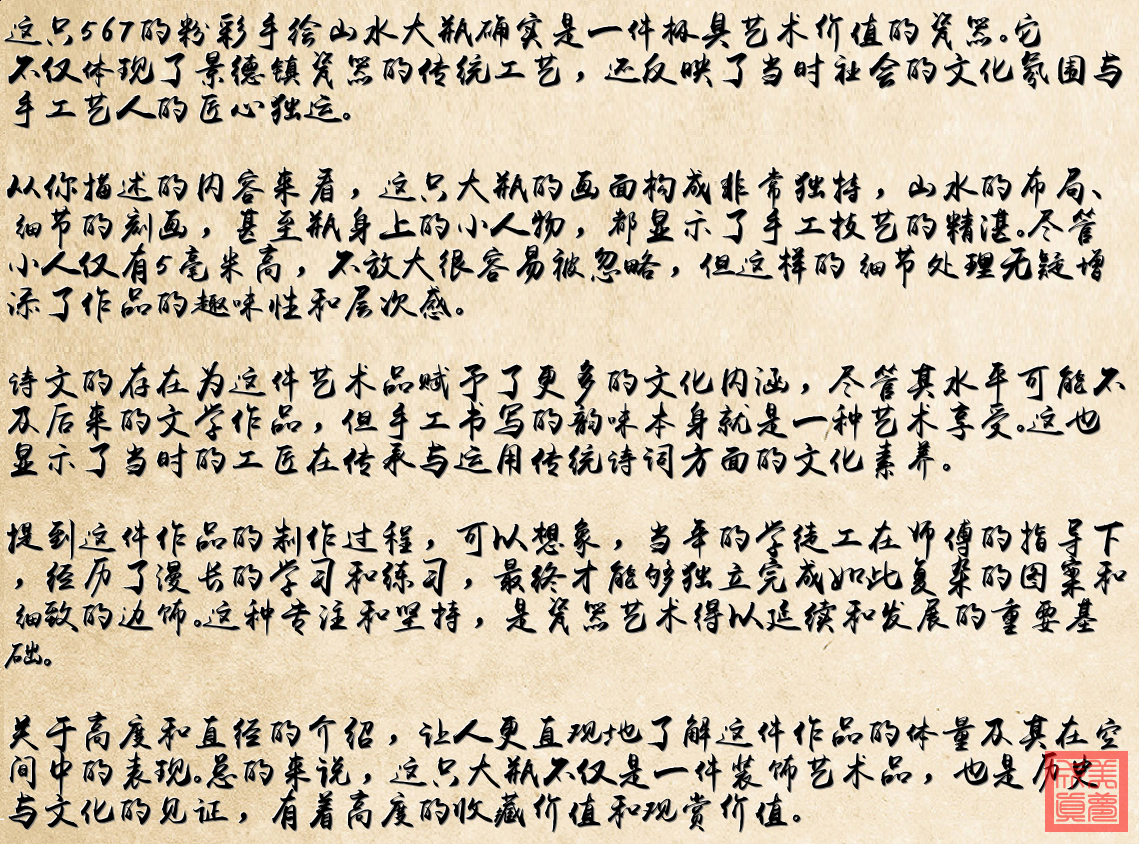 这只567的粉彩手绘山水大瓶确实是一件极具艺术价值的瓷器。它
不仅体现了景德镇瓷器的传统工艺，还反映了当时社会的文化氛围与
手工艺人的匠心独运。
从你描述的内容来看，这只大瓶的画面构成非常独特，山水的布局、
细节的刻画，甚至瓶身上的小人物，都显示了手工技艺的精湛。尽管
小人仅有5毫米高，不放大很容易被忽略，但这样的细节处理无疑增
添了作品的趣味性和层次感。
诗文的存在为这件艺术品赋予了更多的文化内涵，尽管其水平可能不
及后来的文学作品，但手工书写的韵味本身就是一种艺术享受。这也
显示了当时的工匠在传承与运用传统诗词方面的文化素养。
提到这件作品的制作过程，可以想象，当年的学徒工在师傅的指导下
，经历了漫长的学习和练习，最终才能够独立完成如此复杂的图案和
细致的边饰。这种专注和坚持，是瓷器艺术得以延续和发展的重要基
础。
关于高度和直径的介绍，让人更直观地了解这件作品的体量及其在空
间中的表现。总的来说，这只大瓶不仅是一件装饰艺术品，也是历史
与文化的见证，有着高度的收藏价值和观赏价值。